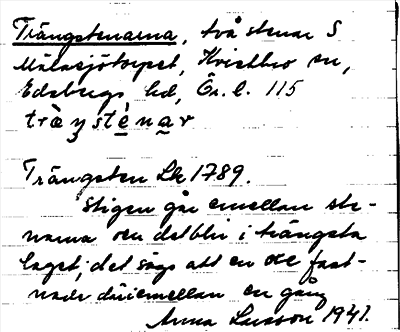 Trängstenarna, två stenar S
Mälasjötorpet, Kvistbro sn,
Edsbergs hd, Ör. l. 115
trä̀ŋstè̱na̱r
Trängsten Lk 1789.
Stigen går emellan ste-
narna och det blir i trängsta
laget; det sägs att en ole fast-
nade däremellan en gång
Anna Larsson 1941.